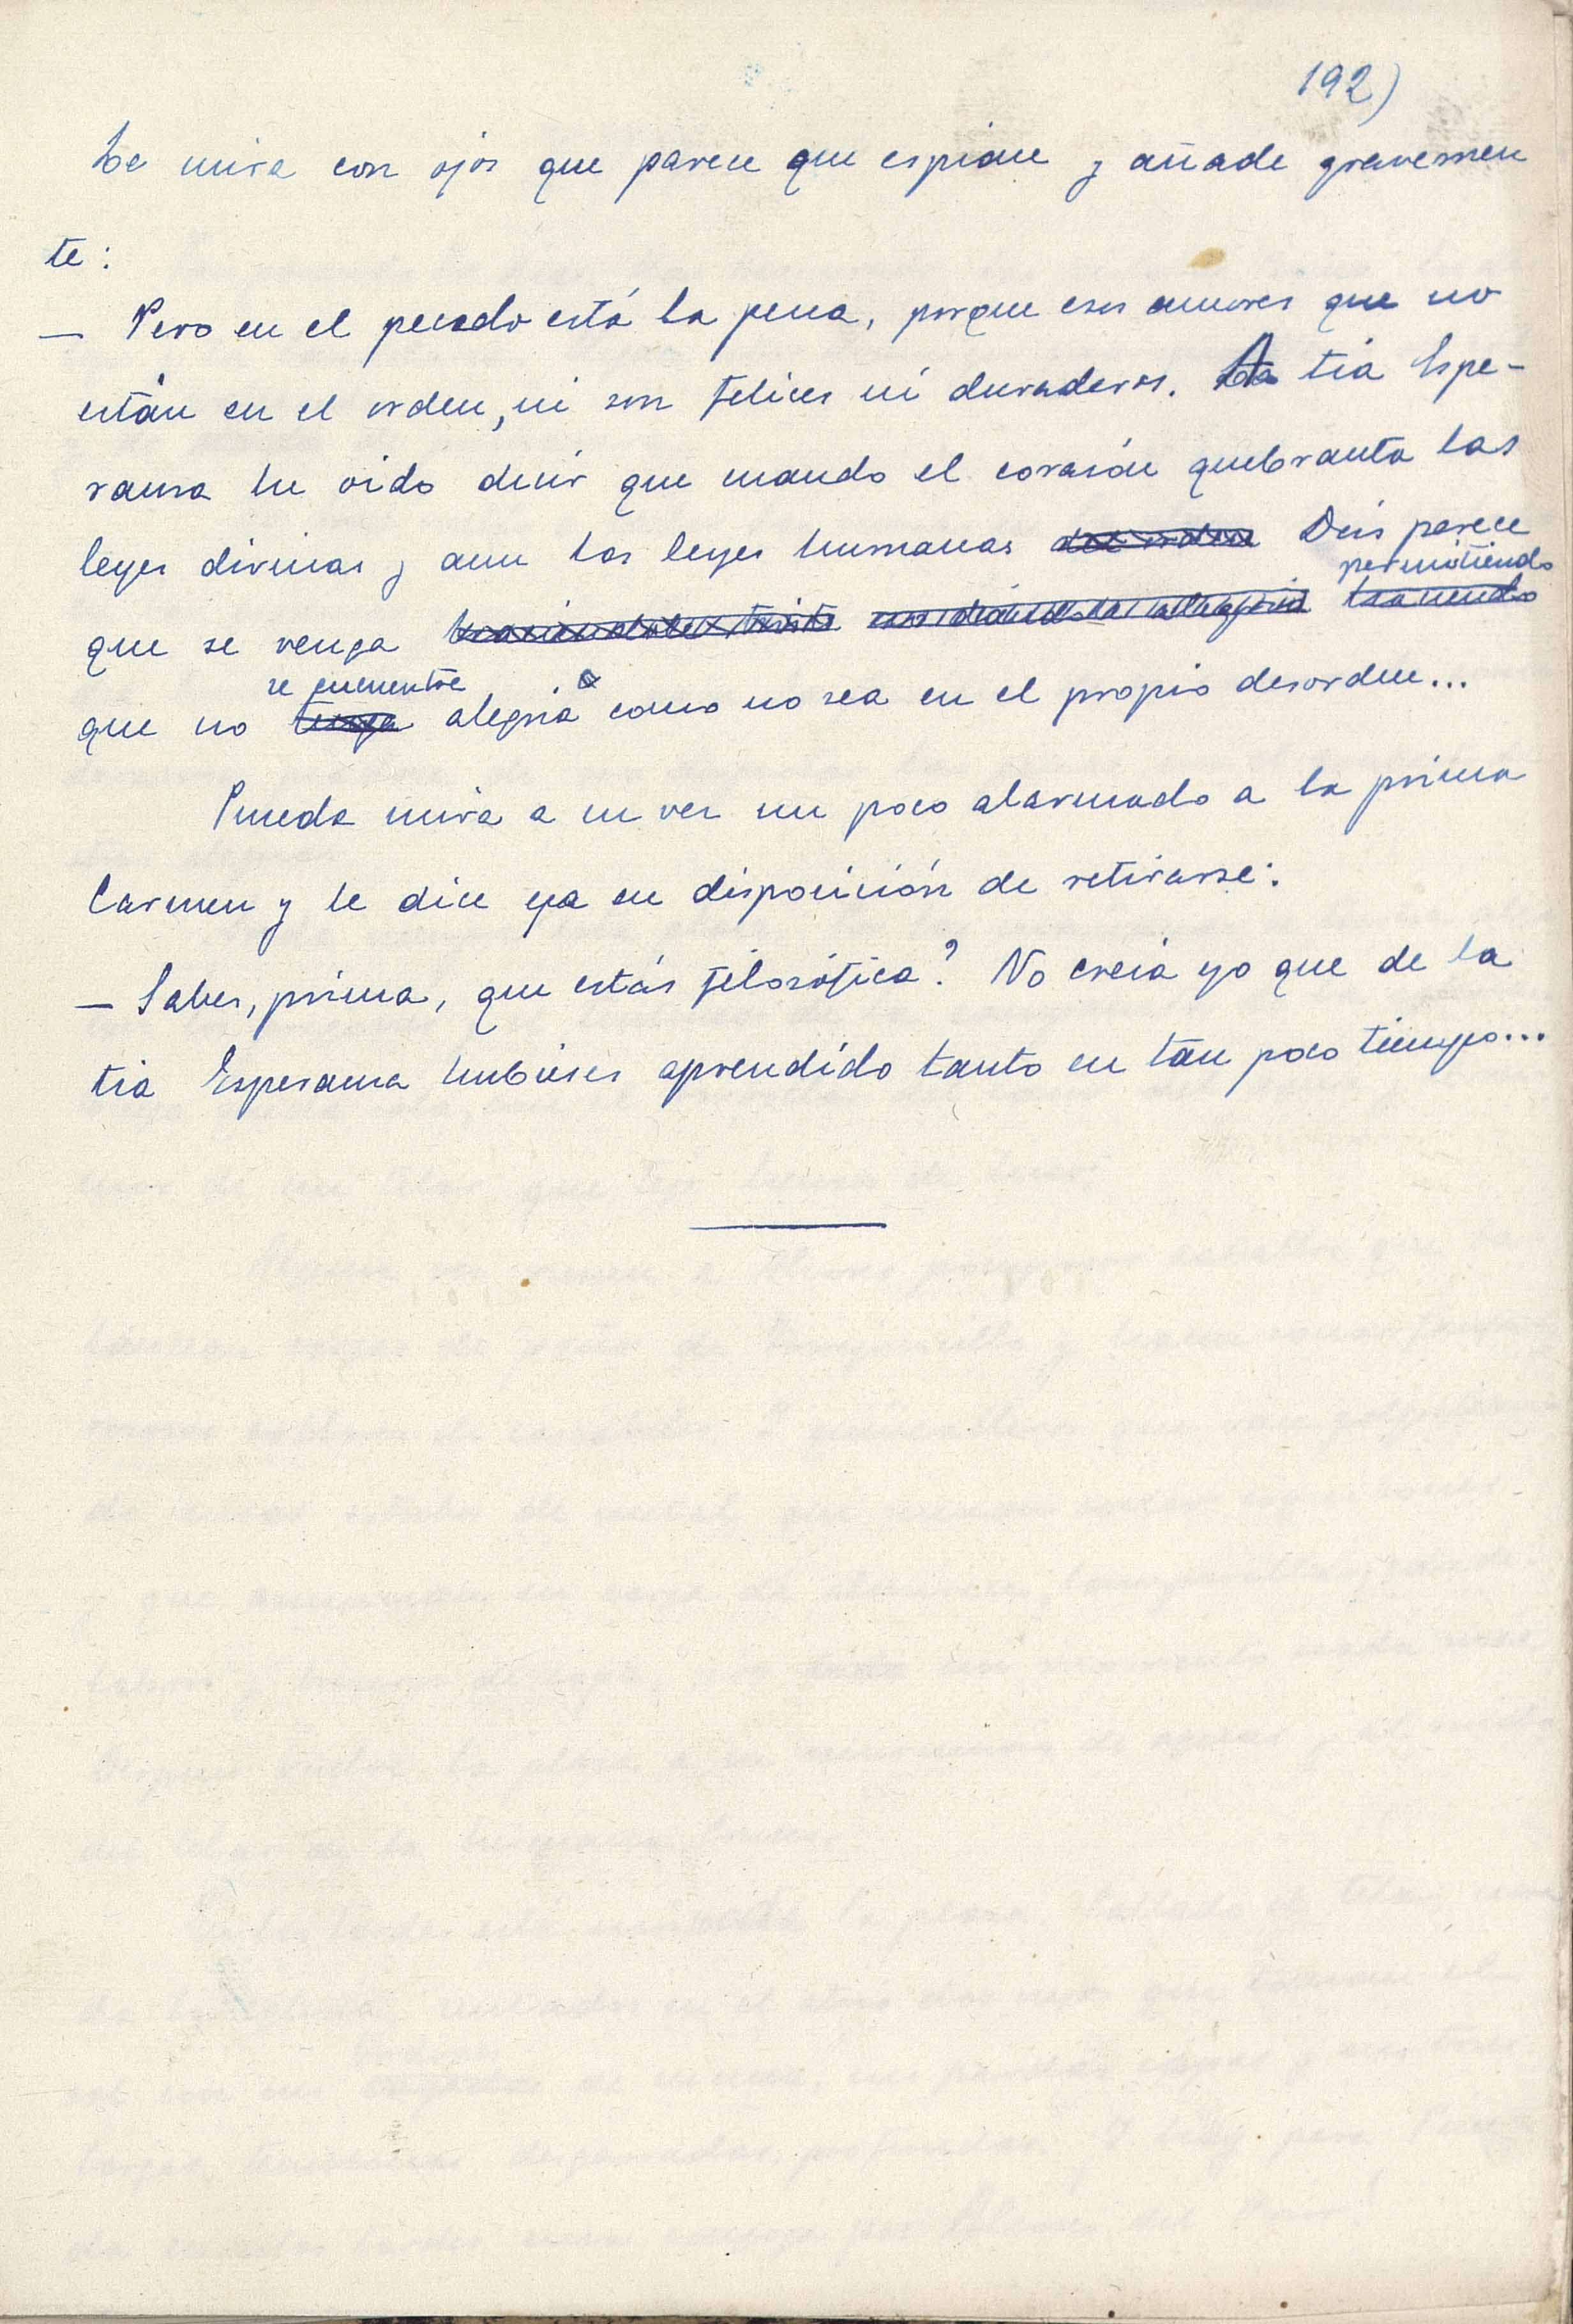 192)
Le mira con ojos que parece que espían y añade gravemen
te:
— Pero en el pecado está la pena, porque esos amores que no
están en el orden, ni son felices ni duraderos. A tía Espe-
ranza he oído decir que cuando el corazón quebranta las
leyes divinas y aun las leyes humanas del orden Dios parece
permitiendo
que se venga haciendo
se encuentre
que no tenga alegría como no sea en el propio desorden...
Pineda mira a su vez un poco alarmado a la prima
Carmen y le dice ya en disposición de retirarse:
— Sabes, prima, que estás filosófica? No creía yo que de la
tía Esperanza hubieses aprendido tanto en tan poco tiempo...